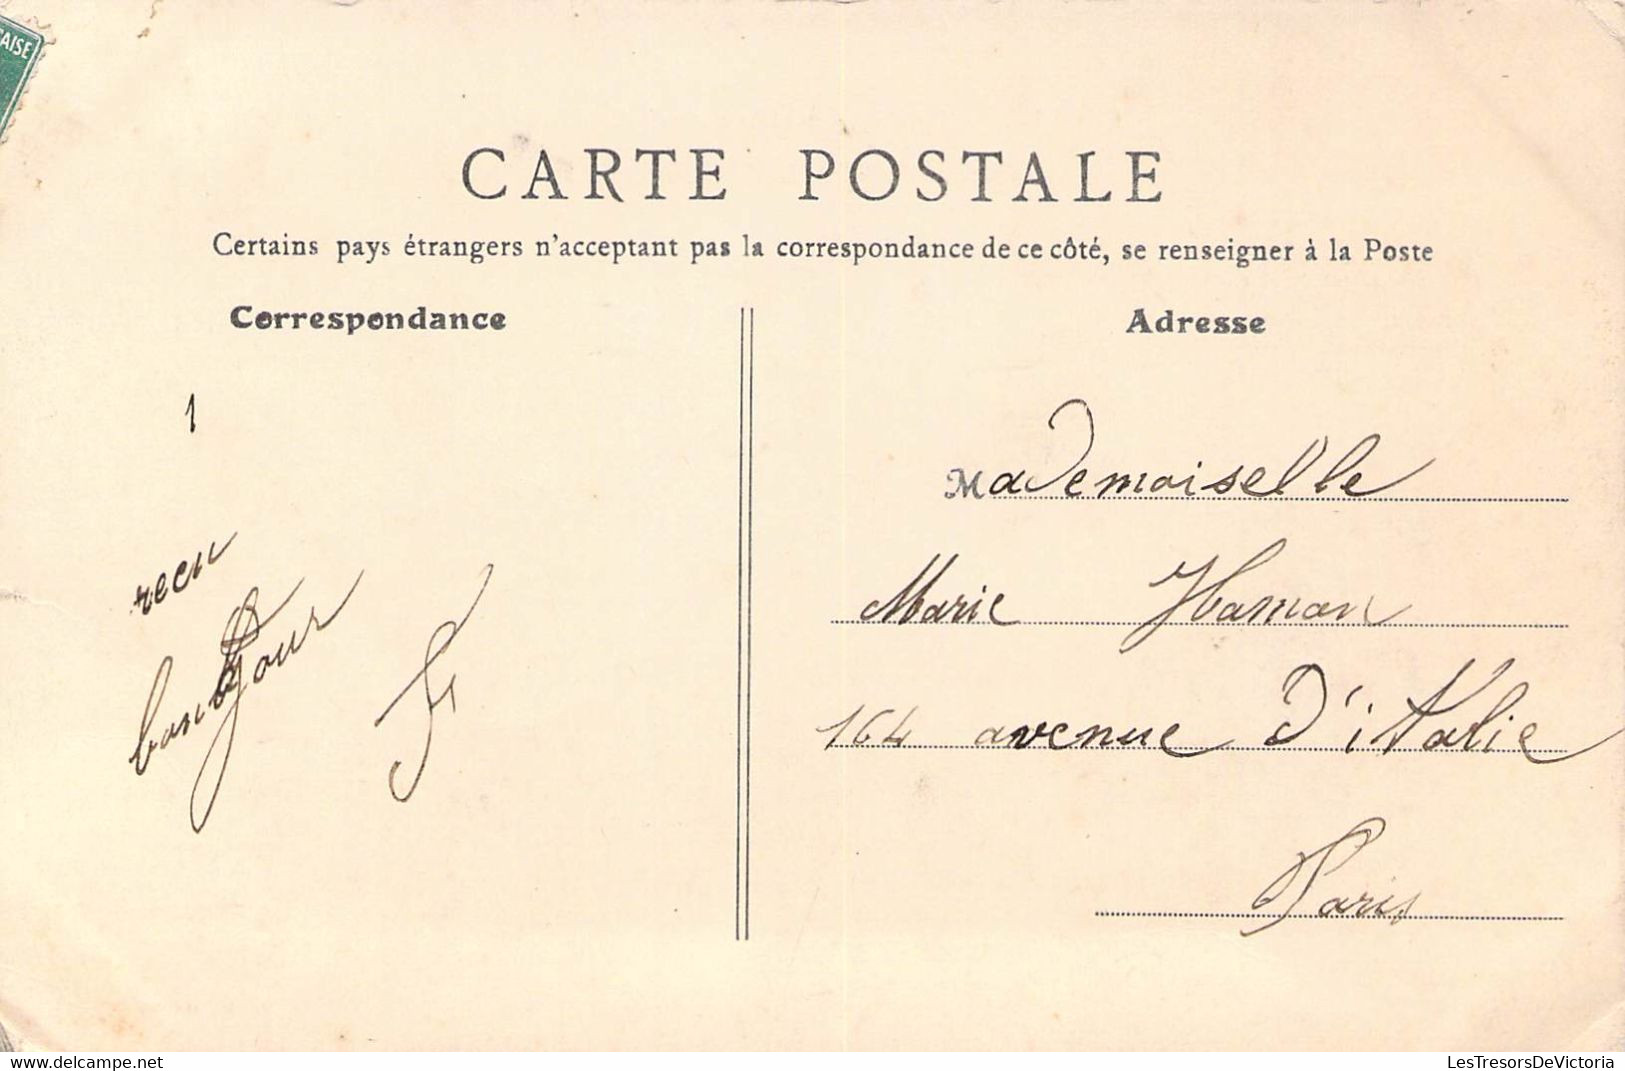 AISE
CARTE POSTALE
Certains pays étrangers n'acceptant pas la correspondance de ce côté, se renseigner à la Poste
Correspondance
Adresse
1
recu
bonjour
Mademoiselle
Marie Hamon
164 avenue D'italie
Paris
www.delcampe.net
LesTresorsDeVictoria